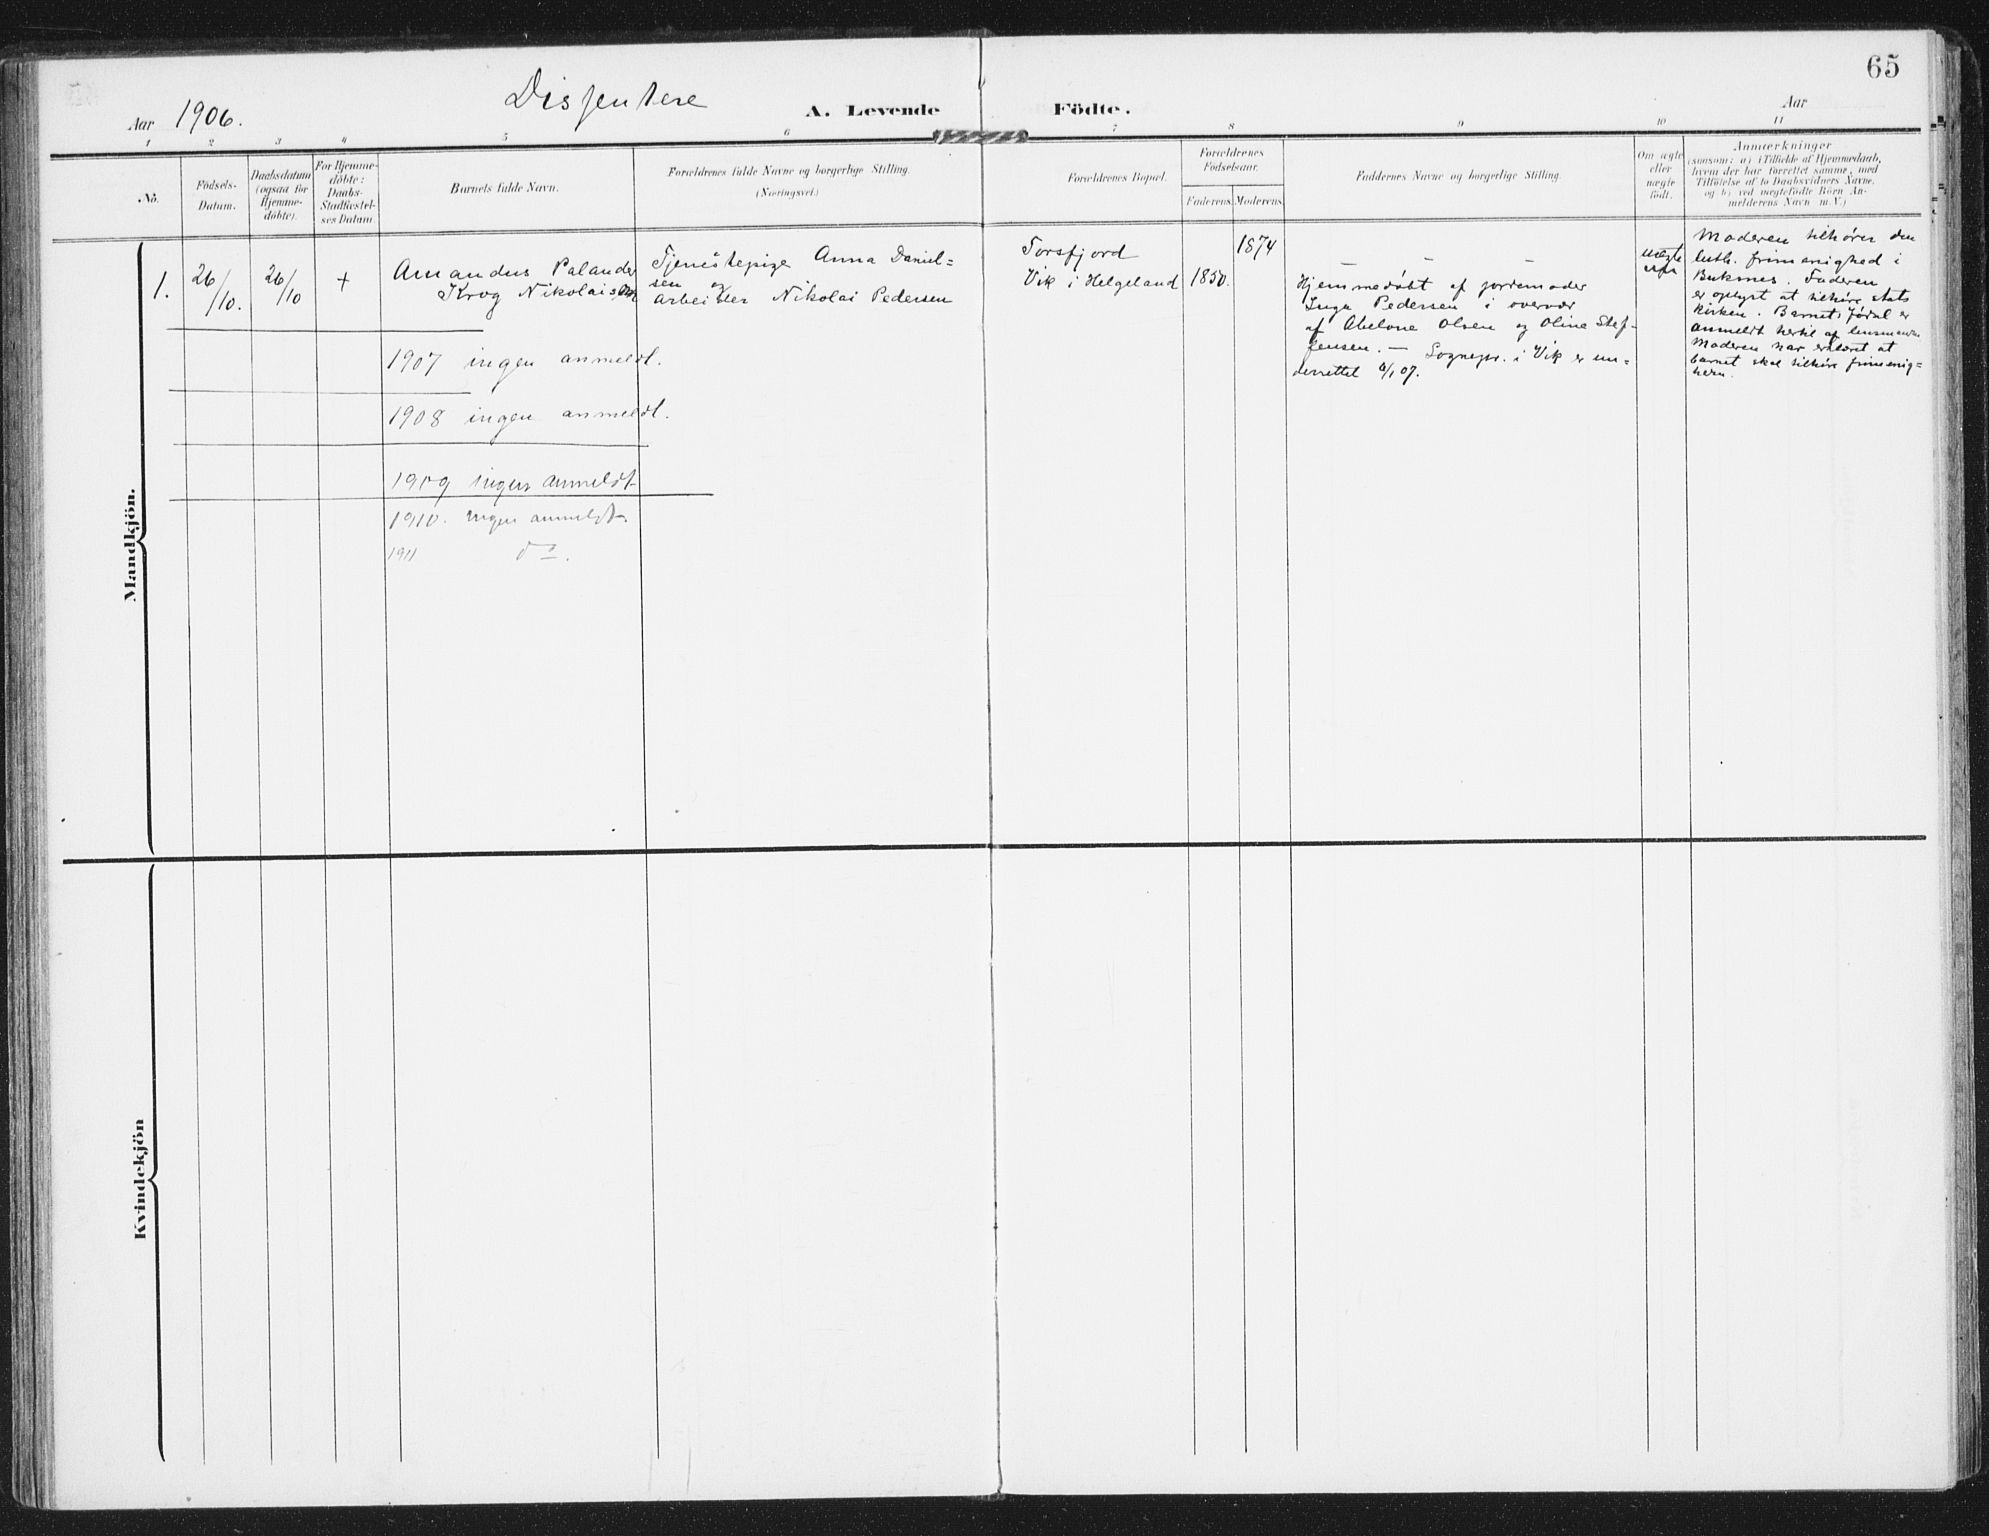 65
Dissentere
Aar 1906.
A. Levende Födte.
Aar
1 2 3 4 5 6 7 8 9 10 11
No.
Födsels-
Datum.
Daabsdatum
(ogsaa for
Hjemme-
döbte).
For Hjemme-
döbte:
Daabs-
Stadfæstel-
ses Datum.
Barnets fulde Navn.
Forældrenes fulde Navne og borgerlige Stilling.
(Næringsvei.)
Forældrenes Bopæl.
Forældrenes
Födselsaar.
Faderens. Moderens.
Faddernes Navne og borgerlige Stilling.
Om ægte
eller
uægte
födt.
Anmærkninger
(saasom: a) i Tilfælde af Hjemmedaab,
hvem der har forrettet samme, med
Tilföielse af to Daabsvidners Navne,
og b) ved uægtefödte Börn An-
melderens Navn m.V.)
Mandkjön.
1.
26/10.
26/10
+
Amandus Palander
Krog Nikolais
Tjenestepige Anna Daniel=
sen og
Arbeider Nikolai Pedersen
Torsfjord
Vik i Helgeland
1850.
1874
— — —
Hjemmedøbt af jordemoder
Inga Pedersen i overvær
af Abelone Olsen og Oline Stef-
fensen. — Sognepr. i Vik er un=
derrettet /1 07.
uægte
Moderen tilhører den
luth. frimenighed i
Buksnes. Faderen
er oplyst at tilhøre stats
kirken. Barnets fødsel er
anmeldt hertil af lensmanden
Moderen har erklæret at
barnet skal tilhøre frimenig=
heden.
1907 ingen anmeldt.
1908 ingen anmeldt.
1909 ingen anmeldt
1910. ingen anmeldt.
1911 do.
Kvindekjön